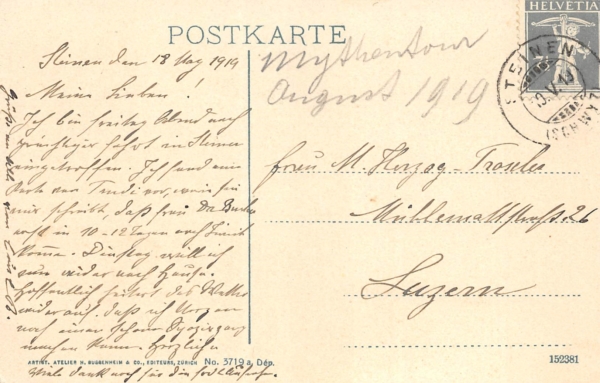 POSTKARTE
HELVETIA
STEINEN
(SCHWYZ)
Mythentour
August 1919
Steinen den 18 Aug 1919
Meine Lieben!
Ich bin freitag Abend nach
fahrt in Steinen
eingetroffen. Ich fand eine
Karte von Trudi vor, worin sie
mir schreibt, daß frau Dr.
erst in 10-12 Tagen nach
komme. Dienstag will ich
nun wieder nach Hause.
Hoffentlich heitert das Wetter
wieder auf, daß ich Morgen
noch einen schönen Spaziergang
machen kann. Herzliche
Viele dank noch für die
Grüße an alle von
Frau M. Herzog-Troxler
Mühlemattstraße 26
Luzern
ARTIST. ATELIER H. GUGGENHEIM & CO., EDITEURS, ZÜRICH No. 3719 a, Dép.
152381